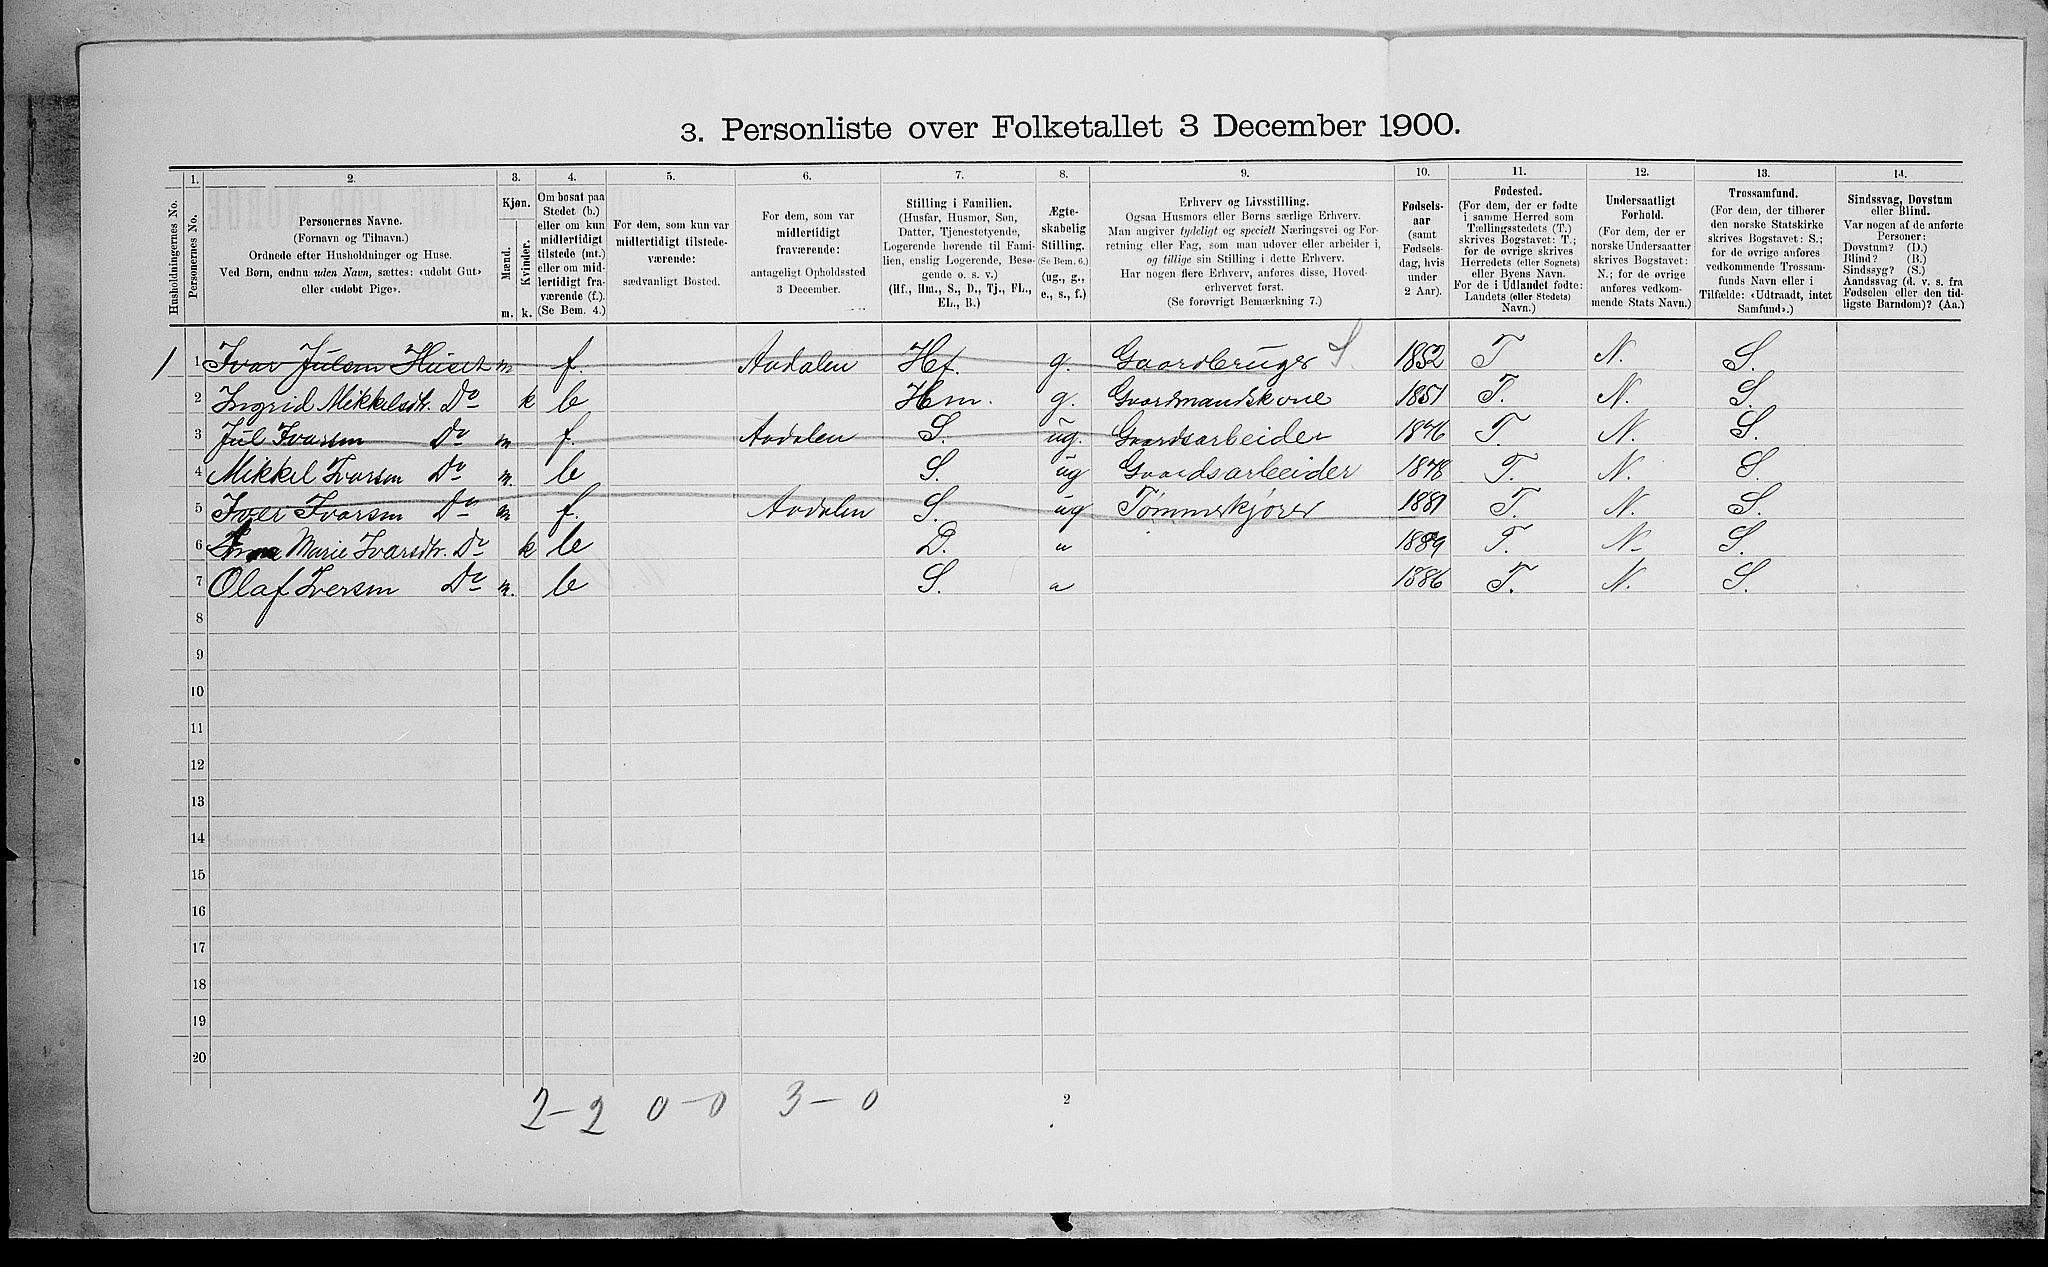 3. Personliste over Folketallet 3 December 1900.
Husholdningernes No.
1. Personernes No.
2. Personernes Navne. (Fornavn og Tilnavn.) Ordnede efter Husholdninger og Huse. Ved Børn, endnu uden Navn, sættes: «udøbt Gut» eller «udøbt Pige».
3. Kjøn. Mænd. m. Kvinder. k.
4. Om bosat paa Stedet (b.) eller om kun midlertidigt tilstede (mt.) eller om midlertidigt fraværende (f.). (Se Bem. 4.)
5. For dem, som kun var midlertidigt tilstedeværende: sædvanligt Bosted.
6. For dem, som var midlertidigt fraværende: antageligt Opholdssted 3 December.
7. Stilling i Familien. (Husfar, Husmor, Søn, Datter, Tjenestetyende, Logerende hørende til Familien, enslig Logerende, Besøgende o. s. v.) (Hf., Hm., S., D., Tj., FL., EL., B.)
8. Ægteskabelig Stilling. (Se Bem. 6.) (ug., g., e., s., f.)
9. Erhverv og Livsstilling. Ogsaa Husmors eller Børns særlige Erhverv. Man angiver tydeligt og specielt Næringsvei og Forretning eller Fag, som man udover eller arbeider i, og tillige sin Stilling i dette Erhverv. Har nogen flere Erhverv, anføres disse, Hoved-erhvervet først. (Se forøvrigt Bemærkning 7.)
10. Fødselsaar (samt Fødselsdag, hvis under 2 Aar).
11. Fødested. (For dem, der er fødte i samme Herred som Tællingsstedets (T.) skrives Bogstavet: T.; for de øvrige skrives Herredets (eller Sognets) eller Byens Navn. For de i Udlandet fødte: Landets (eller Stedets) Navn.)
12. Undersaatligt Forhold. (For dem, der er norske Undersaatter skrives Bogstavet: N.; for de øvrige anføres vedkommende Stats Navn.)
13. Trossamfund. (For dem, der tilhører den norske Statskirke skrives Bogstavet: S.; for de øvrige anføres vedkommende Trossamfunds Navn eller i Tilfælde: «Udtraadt, intet Samfund».)
14. Sindssvag, Døvstum eller Blind. Var nogen af de anførte Personer: Døvstum? (D.) Blind? (B.) Sindssyg? (S.) Aandssvag (d. v. s. fra Fødselen eller den tidligste Barndom)? (Aa.)
1 1 Ivar Julsen Huset m f. Aadalen Hf. g. Gaardbruger S. 1852 T N. S.
2 Ingrid Mikkelsdtr. Do k b Hm. g. Gaardmandskone 1851 T. N. S.
3 Jul Ivarsen Do m f. Aadalen S. ug. Gaardsarbeider 1876 T. N. S.
4 Mikkel Ivarsen Do m. b S. ug Gaardsarbeider 1878 T. N. S.
5 Iver Ivarsen Do m f. Aadalen S. ug Tømmerkjører 1881 T. N. S.
6 Marie Ivarsdtr. Do k b D. u 1889 T. N. S.
7 Olaf Iversen Do m. b S. u 1886 T. N. S.
8
9
10
11
12
13
14
15
16
17
18
19
20
2-2 0-0 3-0
2